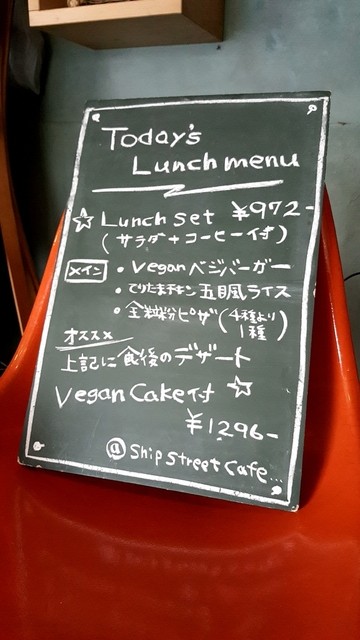 Today's
Lunch menu
☆ Lunch set ¥972-
(サラダ+コーヒー付)
メイン ・Vegan ベジバーガー
・てりたまチキン 五目風ライス
・全粒粉ピザ(4種より1種)
オススメ
上記に食後のデザート
Vegan Cake付 ☆
¥1296-
@ Ship Street Cafe...